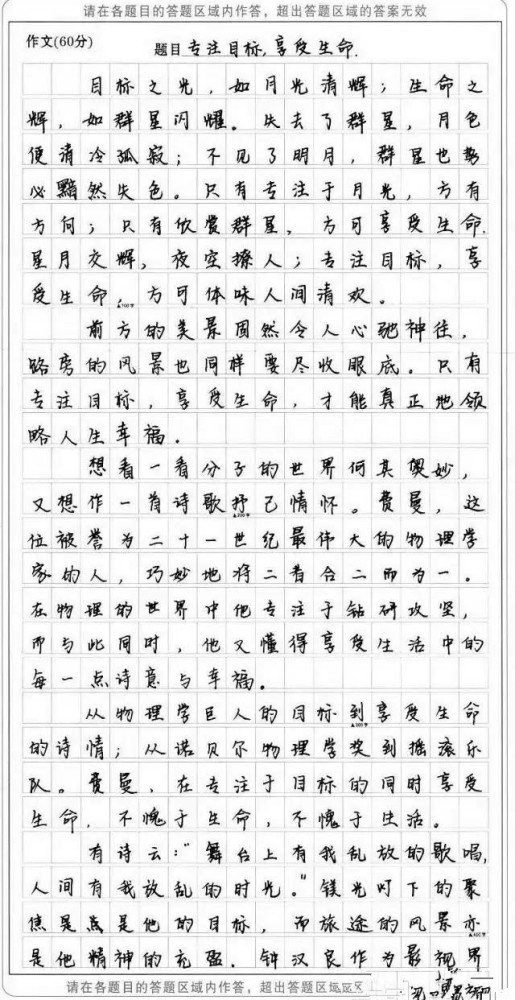 请在各题目的答题区域内作答，超出答题区域的答案无效
作文(60分)
题目 专注目标,享受生命.
目标之光，如月光清辉；生命之
辉，如群星闪耀。失去了群星，月色
便清冷孤寂；不见了明月，群星也势
必黯然失色。只有专注于月光，方有
方向；只有欣赏群星，方可享受生命.
星月交辉，夜空撩人；专注目标，享
受生命，方可体味人间清欢。
▲100字
前方的美景固然令人心驰神往，
路旁的风景也同样要尽收眼底。只有
专注目标，享受生命，才能真正地领
略人生幸福。
想看一看分子的世界何其奥妙，
又想作一首诗歌抒己情怀。费曼，这
▲200字
位被誉为二十一世纪最伟大的物理学
家的人，巧妙地将二者合二而为一。
在物理的世界中他专注于钻研攻坚，
而与此同时，他又懂得享受生活中的
每一点诗意与幸福。
从物理学巨人的目标到享受生命
▲300字
的诗情；从诺贝尔物理学奖到摇滚乐
队。费曼，在专注于目标的同时享受
生命，不愧于生命，不愧于生活。
有诗云:"舞台上有我乱放的歌唱,
人间有我放乱的时光。"镁光灯下的聚
焦是点是他的目标，而旅途的风景亦
▲400字
是他精神的充盈。钟汉良作为影视界
请在各题目的答题区域内作答，超出答题区域